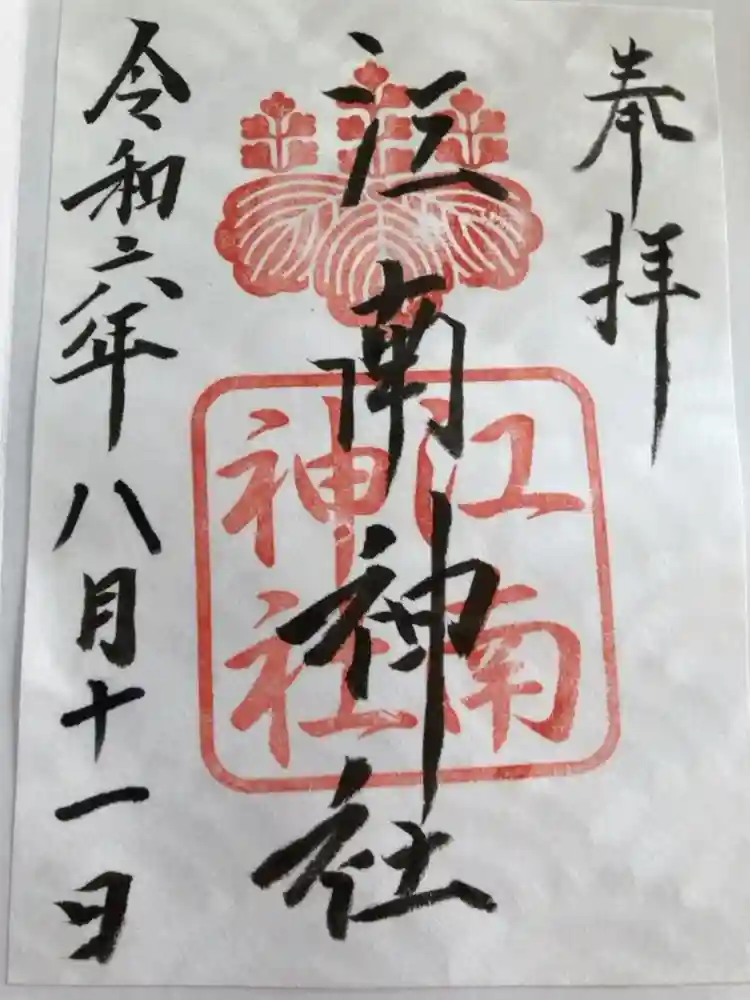 奉拝
江南神社
江南
神社
令和六年八月十一日